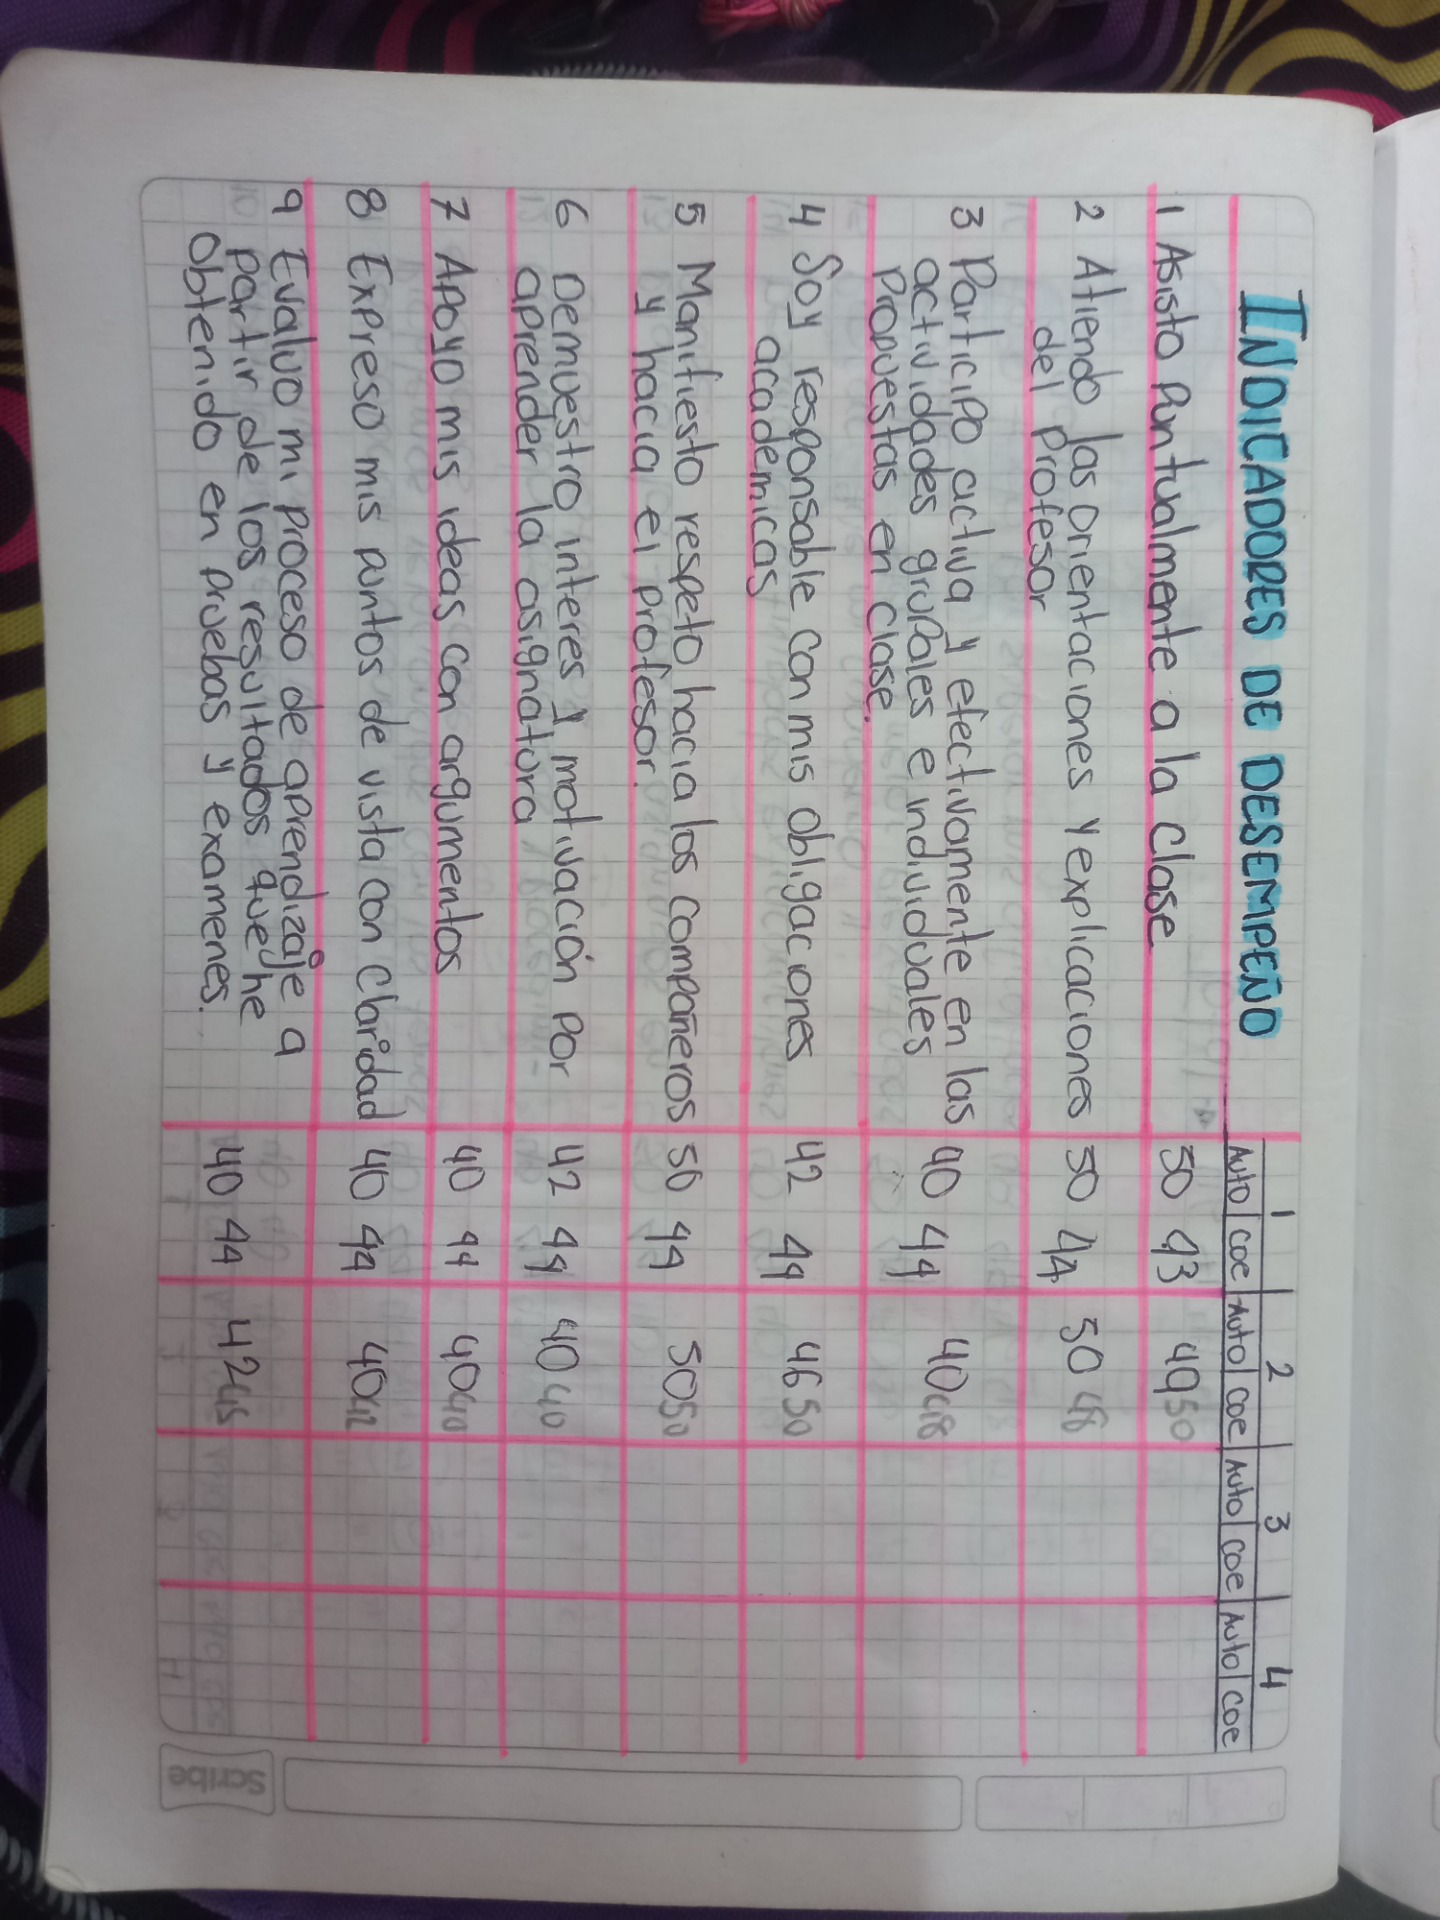 INDICADORES DE DESEMPEÑO
1 2 3 4
Auto coe Auto coe Auto coe Auto coe
1 Asisto puntualmente a la clase 50 43 49 50
2 Atiendo las orientaciones y explicaciones 50 44 50 48
del profesor
3 Participo activa y efectivamente en las 40 44 40 48
actividades grupales e individuales
propuestas en clase.
4 Soy responsable con mis obligaciones 42 44 46 50
academicas
5 Manifiesto respeto hacia los compañeros 50 44 50 50
y hacia el profesor.
6 Demuestro interes y motivación por 42 44 40 40
aprender la asignatura
7 Apoyo mis ideas con argumentos 40 44 40 40
8 Expreso mis puntos de vista con claridad 40 44 40 42
9 Evaluo mi proceso de aprendizaje a
partir de los resultados que he
obtenido en pruebas y examenes. 40 44 42 45
Scribe